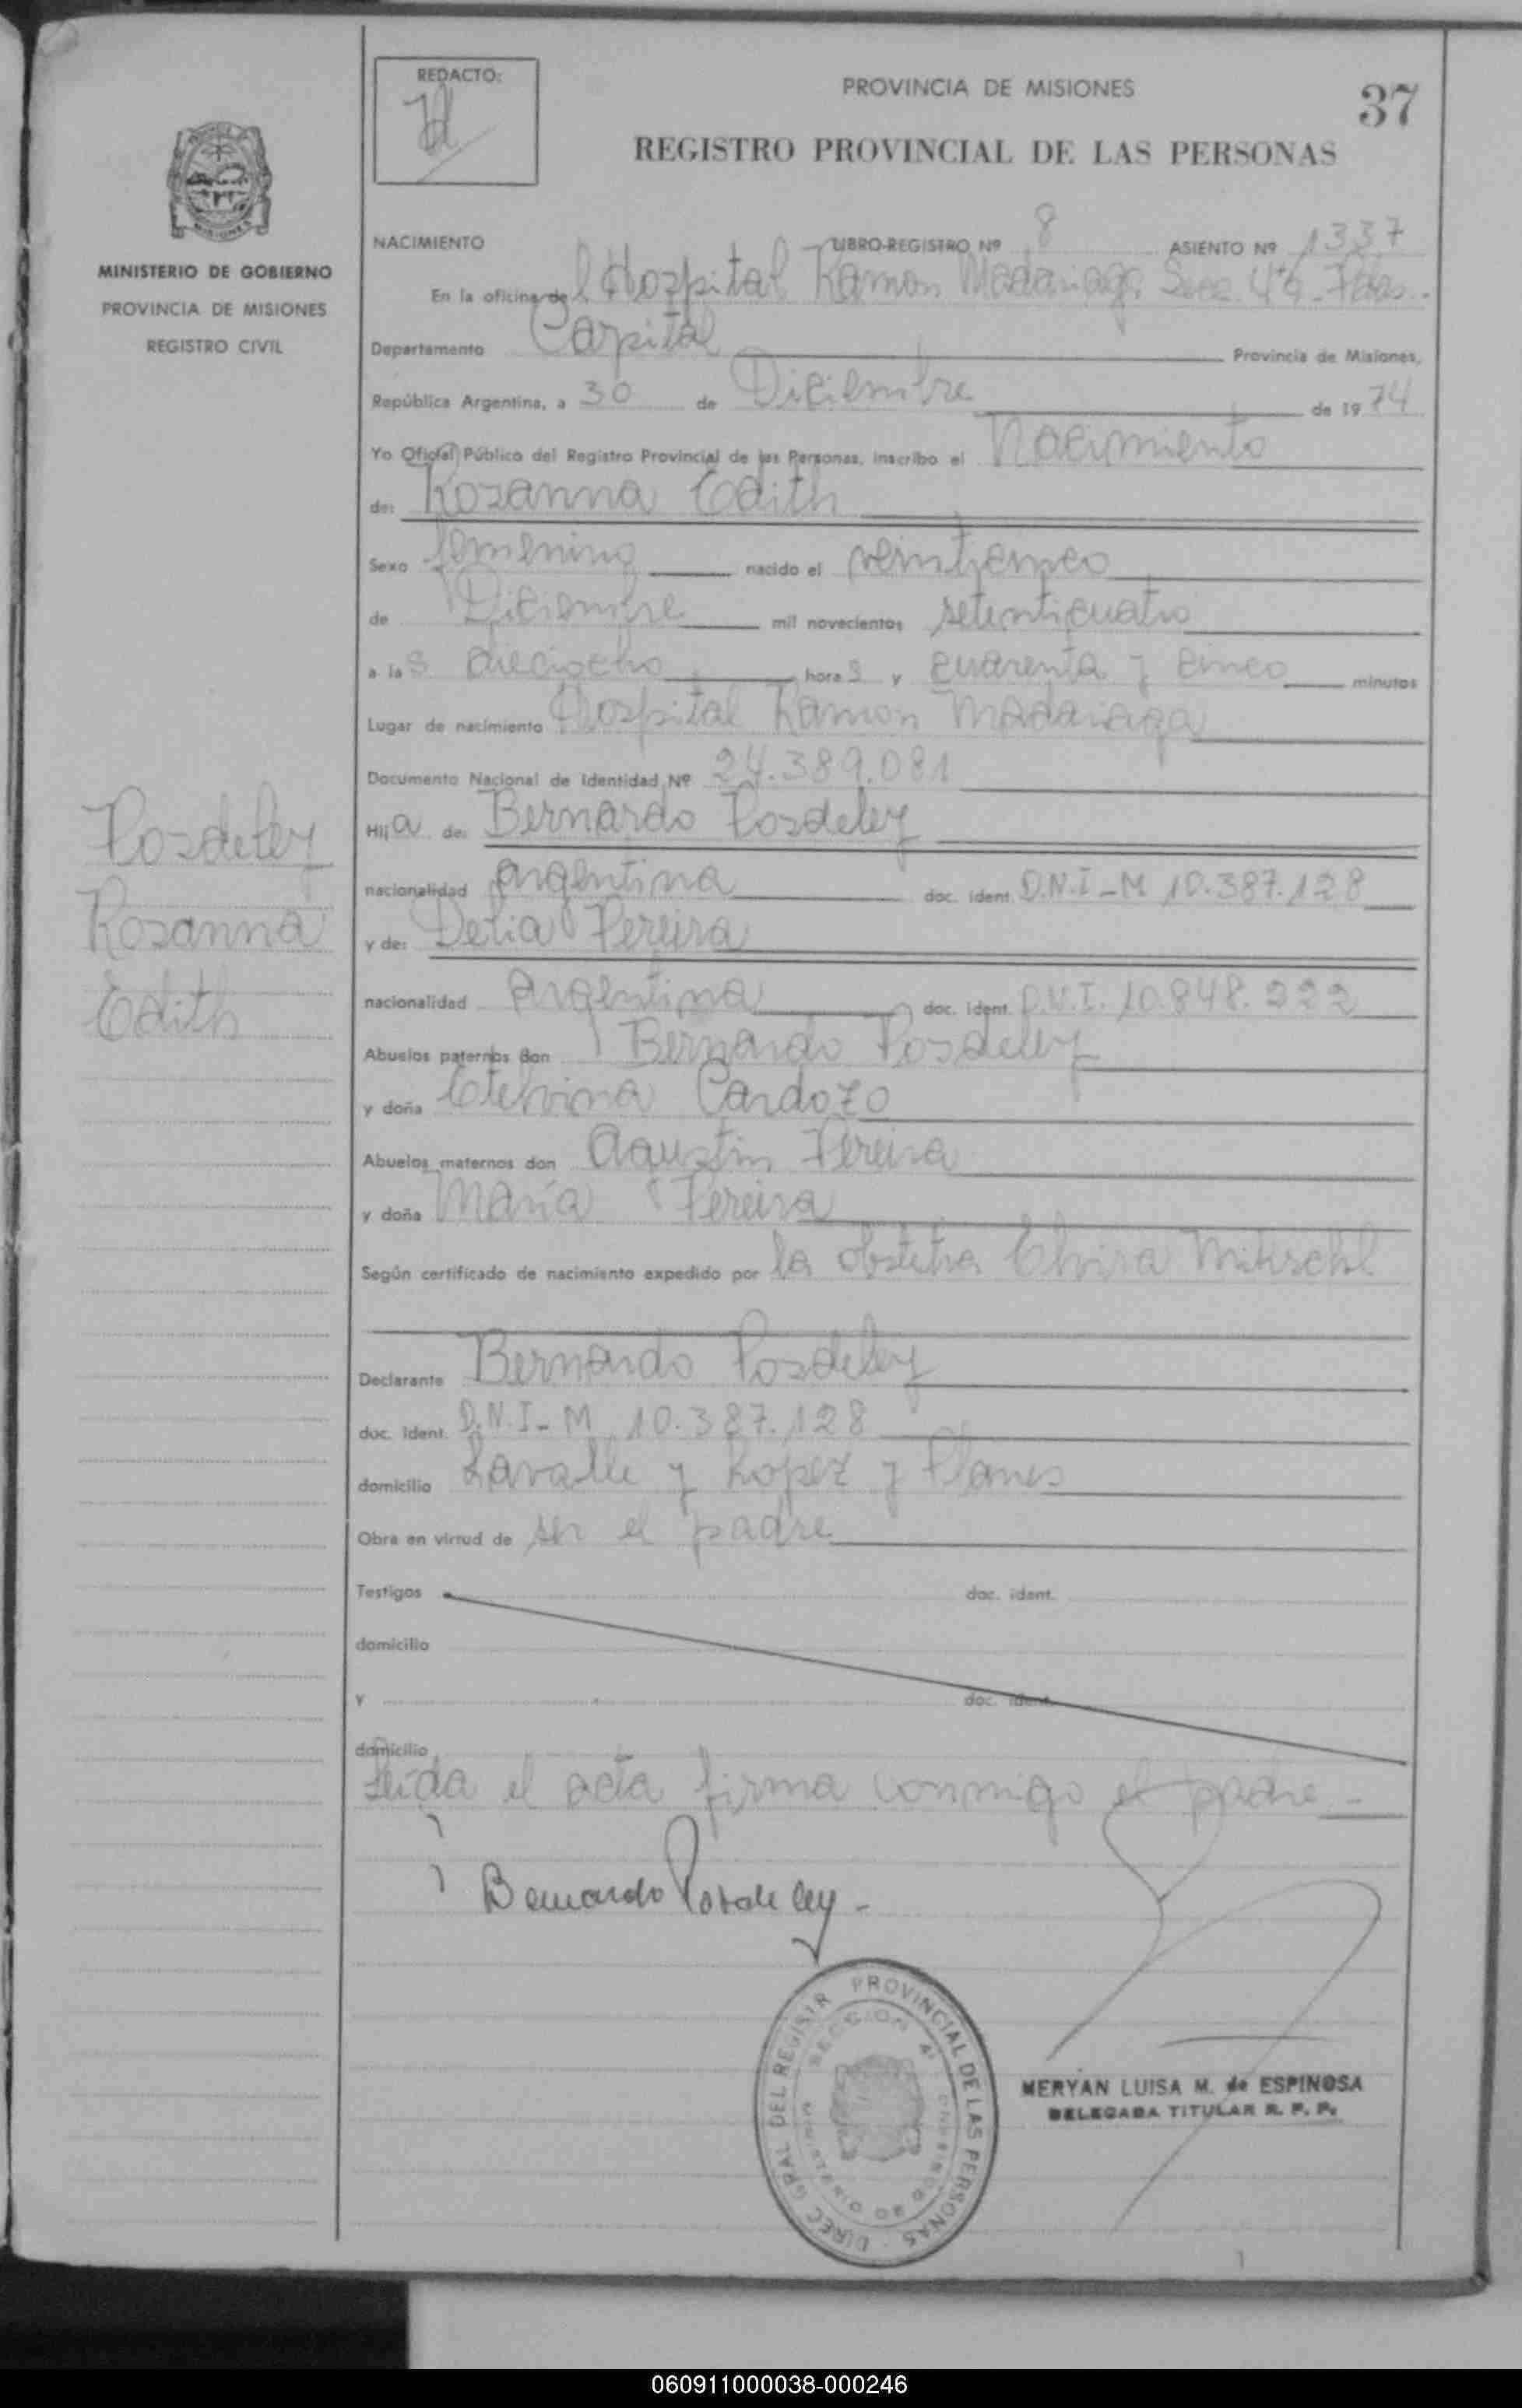 REDACTO:
PROVINCIA DE MISIONES
37
REGISTRO PROVINCIAL DE LAS PERSONAS
MINISTERIO DE GOBIERNO
PROVINCIA DE MISIONES
REGISTRO CIVIL
NACIMIENTO LIBRO-REGISTRO Nº 8 ASIENTO Nº 1337
En la oficina del Hospital Ramon Madariaga Secc. 4ta. Pdas.
Departamento Capital Provincia de Misiones,
República Argentina, a 30 de Diciembre de 1974
Yo Oficial Público del Registro Provincial de las Personas, inscribo el Nacimiento
de: Rosanna Edith
Sexo femenino nacido el veinticinco
de Diciembre mil novecientos setenticuatro
a las dieciocho horas y cuarenta y cinco minutos
Lugar de nacimiento Hospital Ramon Madariaga
Documento Nacional de Identidad Nº 24.389.081
Hija de: Bernardo Posdeley
nacionalidad argentina doc. ident. D.N.I-M 10.387.128
y de: Delia Pereira
nacionalidad argentina doc. ident. D.N.I. 10.848.222
Abuelos paternos don Bernardo Posdeley
y doña Etelvina Cardozo
Abuelos maternos don Agustin Pereira
y doña María Pereira
Según certificado de nacimiento expedido por la obstetra Elvira
Declarante Bernardo Posdeley
doc. ident. D.N.I-M 10.387.128
domicilio Lavalle y Lopez y Planes
Obra en virtud de ser el padre
Testigos doc. ident.
domicilio
y doc. ident.
domicilio
Leida el acta firma conmigo el padre.-
Posdeley
Rosanna
Edith
Bernardo Posdeley.-
DIREC GRAL DEL REGISTR PROVINCIAL DE LAS PERSONAS
SECCION 4ª
MINISTERIO DE GOBIERNO
MERYAN LUISA M. de ESPINOSA
DELEGADA TITULAR R. P. P.
060911000038-000246